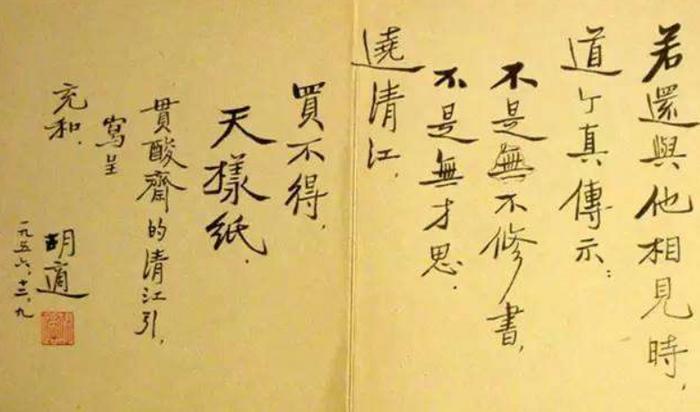 若還與他相見時，
道个真傳示：
不是無不修書，
不是無才思．
遶清江，
買不得，
天樣紙．
貫酸齋的清江引，
寫呈
充和．
胡適
一九五六、十二、九